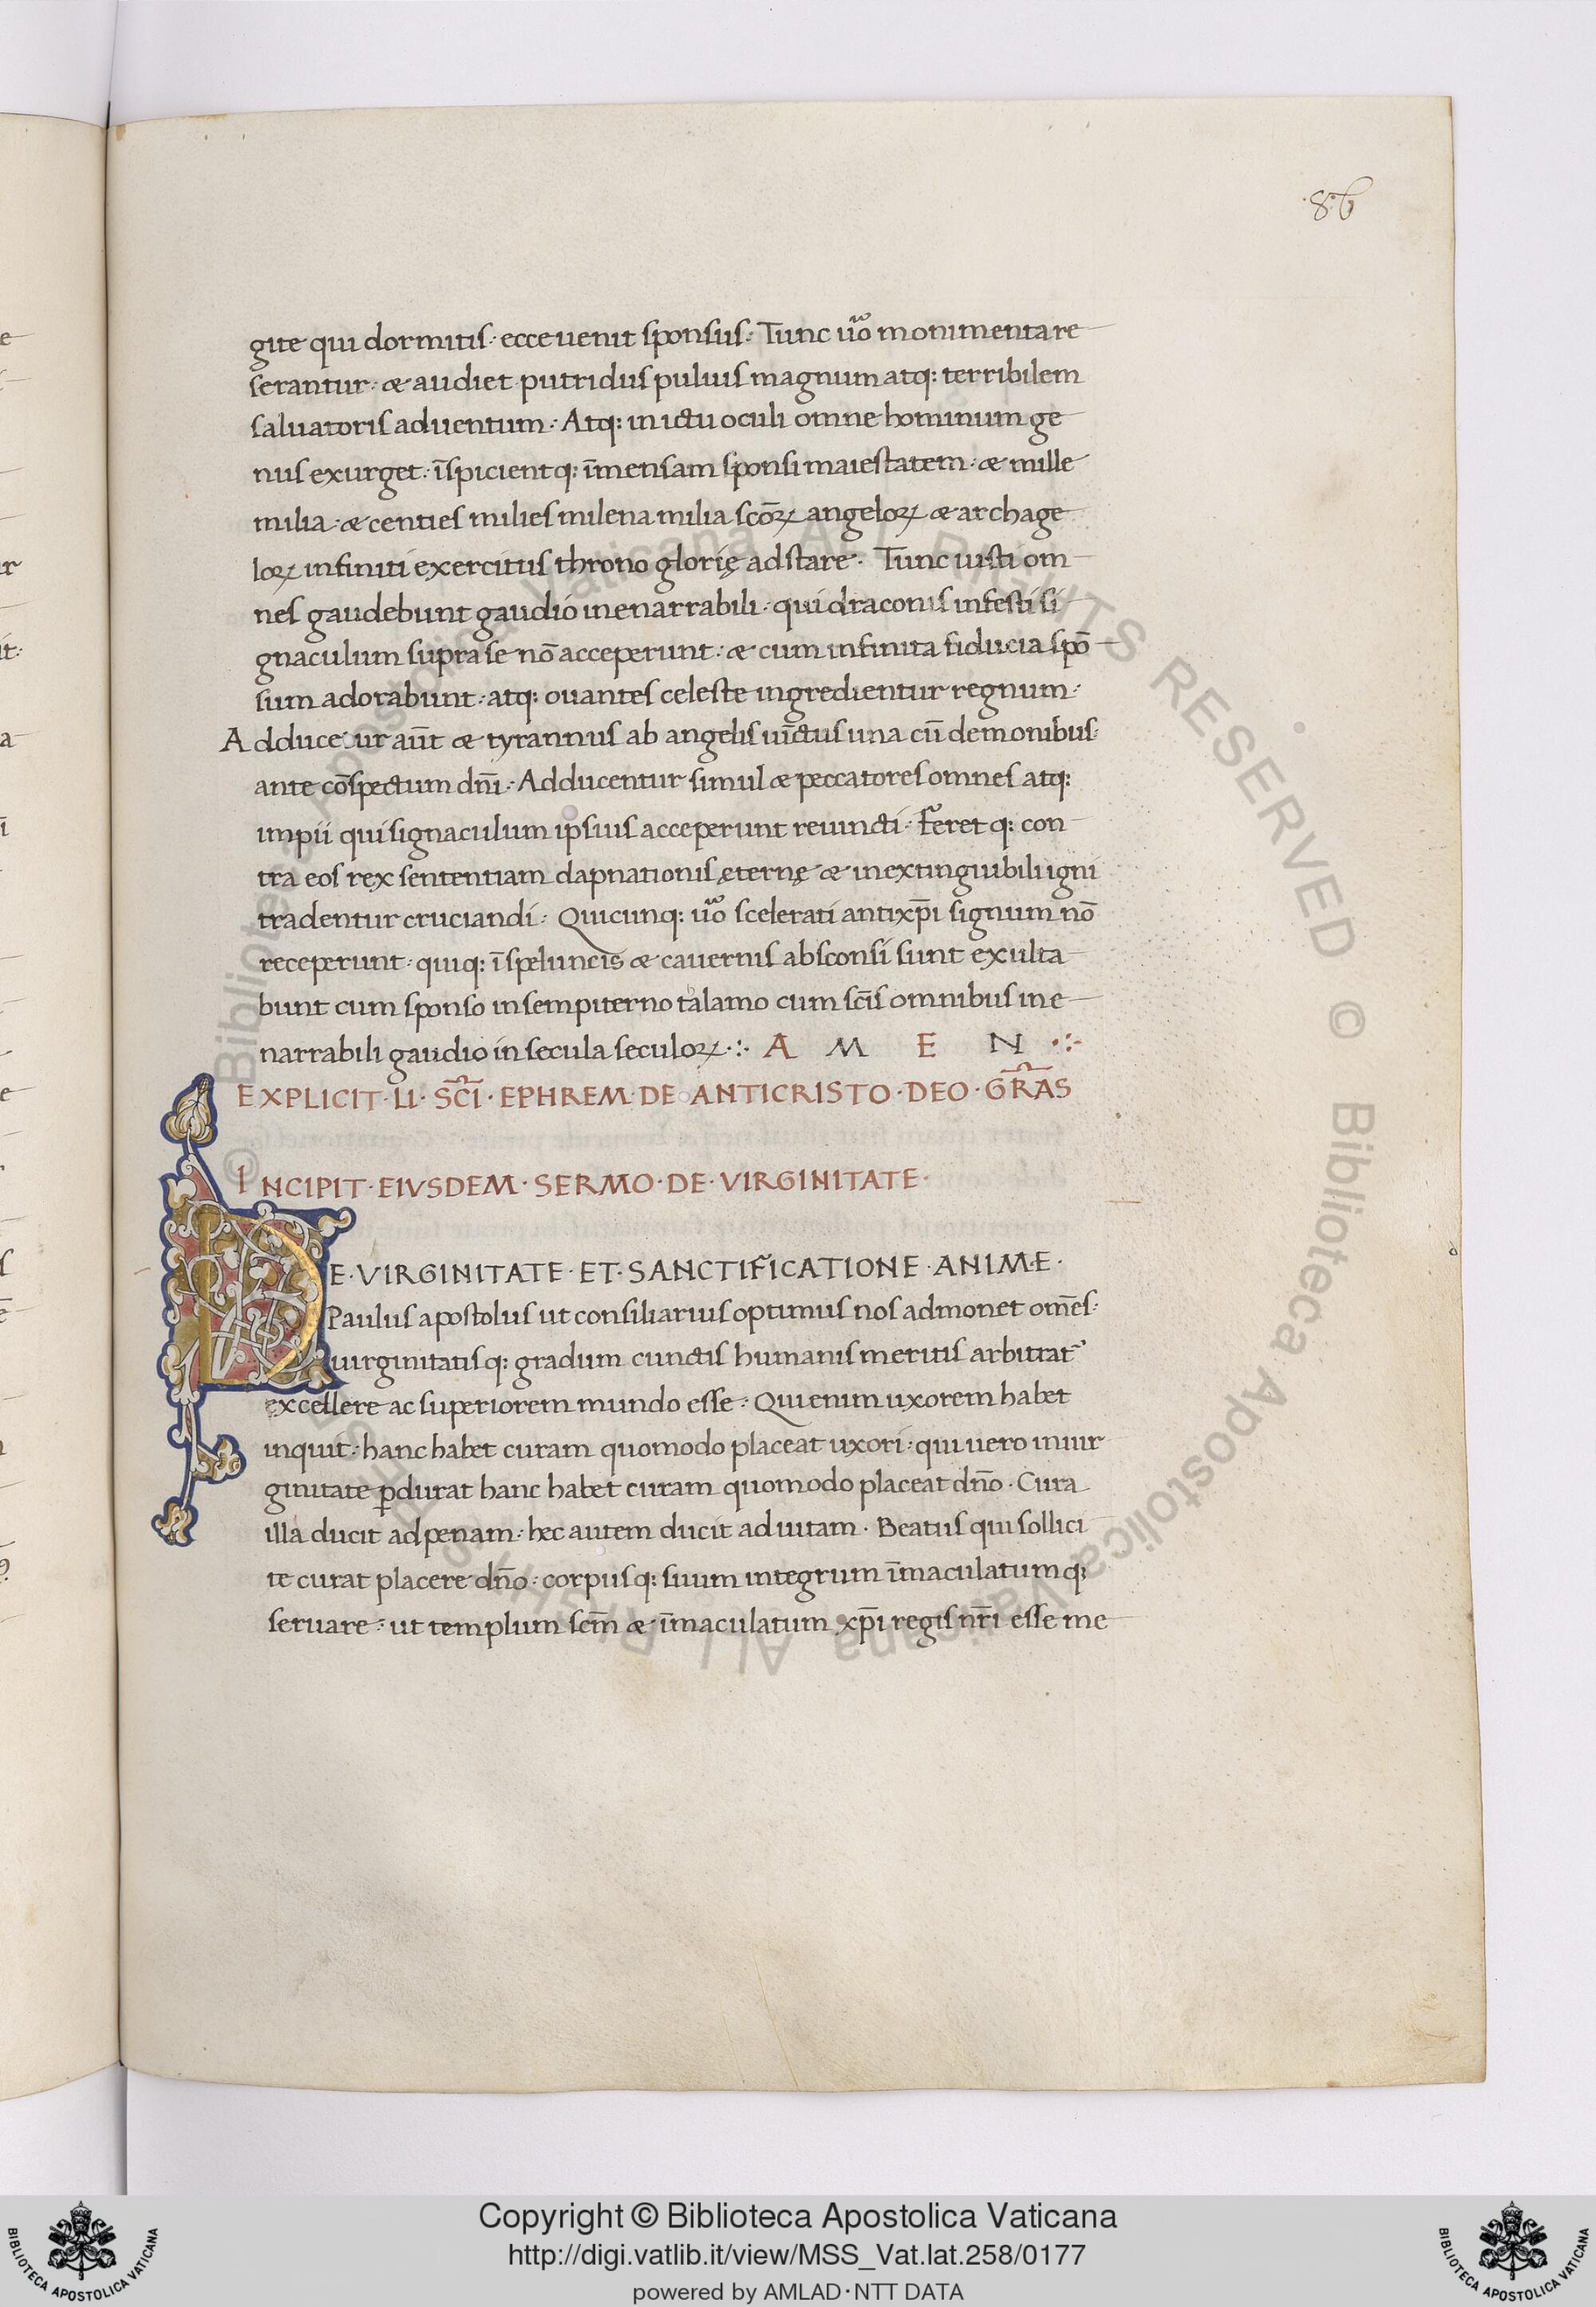 ·86
gite qui dormitis· ecce uenit sponsus· Tunc ũo monimenta re
serantur· & audiet putridus puluis magnum atq: terribilem
saluatoris aduentum· Atq: in ictu oculi omne hominum ge
nus exurget· ĩspicientq: ĩmensam sponsi maiestatem· & mille
milia· & centies milies milena milia scõꝝ angeloꝝ & archage
loꝝ infiniti exercitus throno glorię adstare· Tunc iusti om
nes gaudebunt gaudio inenarrabili· qui draconis infesti si
gnaculum supra se nõ acceperunt· & cum infinita fiducia spõ
sum adorabunt· atq: ouantes celeste ingredientur regnum·
Adducetur aũt & tyrannus ab angelis uĩctus una cũ demonibus·
ante cõspectum dñi· Adducentur simul & peccatores omnes atq:
impii qui signaculum ipsius acceperunt reuincti· Feret q: con
tra eos rex sententiam dapnationis ęternę & inextinguibili igni
tradentur cruciandi· Quicunq: ũo scelerati antixp̄i signum nõ
receperunt· quiq: ĩ speluncis & cauernis absconsi sunt exulta
bunt cum sponso in sempiterno talamo cum sc̃is omnibus ine
narrabili gaudio in secula seculoꝝ·:· A M E N ·:·
EXPLICIT· LI· SC̃I· EPHREM· DE ANTICRISTO· DEO· GR̃AS
INCIPIT· EIVSDEM· SERMO· DE· VIRGINITATE·
DE· VIRGINITATE· ET· SANCTIFICATIONE· ANIME·
Paulus apostolus ut consiliarius optimus nos admonet om̃es·
uirginitatisq: gradum cunctis humanis meritis arbitrat᷑
excellere ac superiorem mundo esse· Qui enim uxorem habet
inquit· hanc habet curam quomodo placeat uxori· qui uero in uir
ginitate ꝑdurat hanc habet curam quomodo placeat dño· Cura
illa ducit ad penam· hec autem ducit ad uitam· Beatus qui sollici
te curat placere dño· corpusq: suum integrum ĩmaculatumq:
seruare· ut templum scm̃ & ĩmaculatum xp̄i regis nr̃i esse me
Copyright © Biblioteca Apostolica Vaticana
http://digi.vatlib.it/view/MSS_Vat.lat.258/0177
powered by AMLAD·NTT DATA
BIBLIOTECA APOSTOLICA VATICANA
BIBLIOTECA APOSTOLICA VATICANA
© Biblioteca Apostolica Vaticana ALL RIGHTS RESERVED © Biblioteca Apostolica Vaticana ALL RIGHTS RESERVED